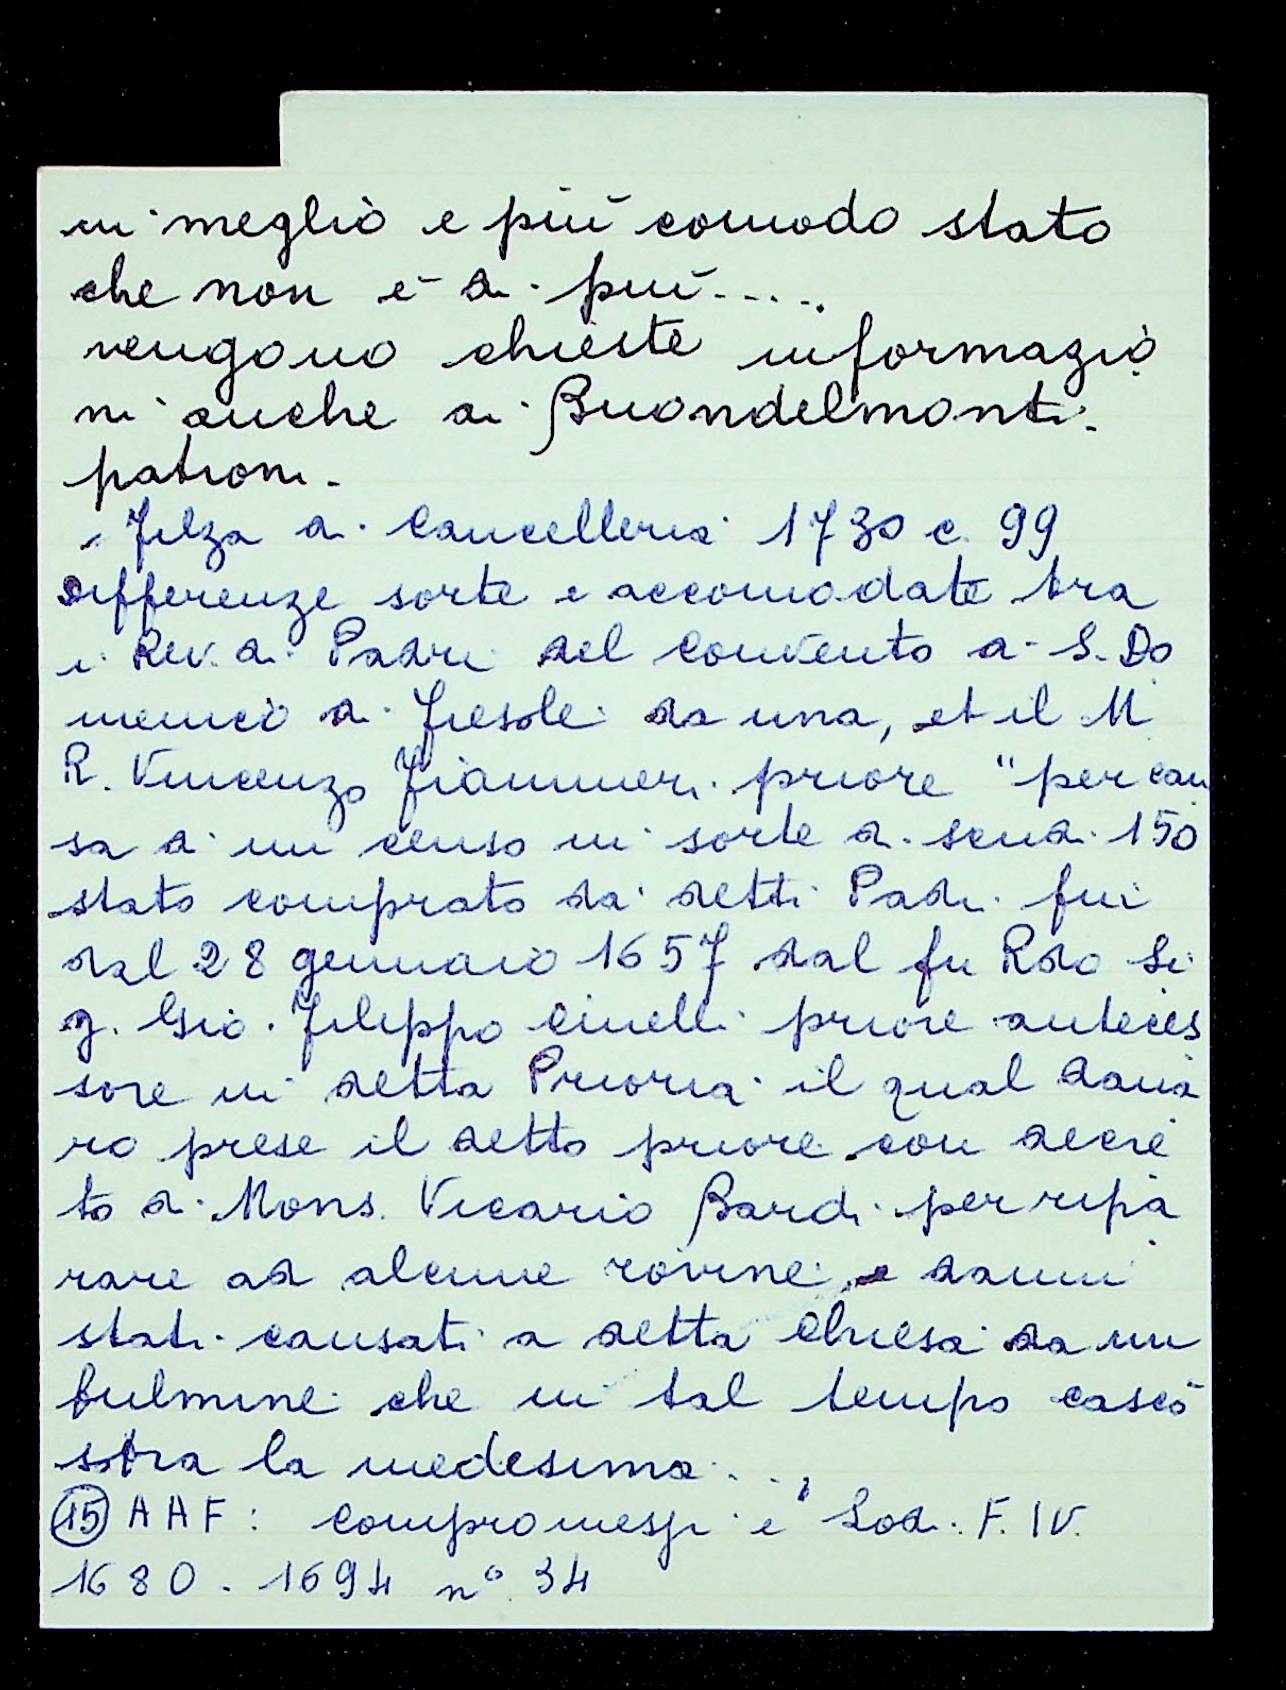 in meglio e più comodo stato
che non è di più.....
vengono chieste informazio
ni anche ai Buondelmonti
patroni.
- Filza di Cancelleria 1730 c. 99
differenze sorte e accomodate tra
i Rev.di Padri del convento di S. Do
menico di Fiesole da una, et il M
R. Vincenzo Fiammeri priore "per cau
sa di un censo in sorte di scudi 150
stato comprato da detti Padri fin
dal 28 gennaio 1657 dal fu Rdo Si
g. Gio. Filippo Cinelli priore anteces
sore in detta Prioria il qual dana
ro prese il detto priore con decre
to di Mons. Vicario Bardi per ripa
rare ad alcune rovine e danni
stati causati a detta Chiesa da un
fulmine che in tal tempo cascò
sopra la medesima...."
(15) AAF: Compromessi e Lodi F. IV.
1680. 1694 n° 34